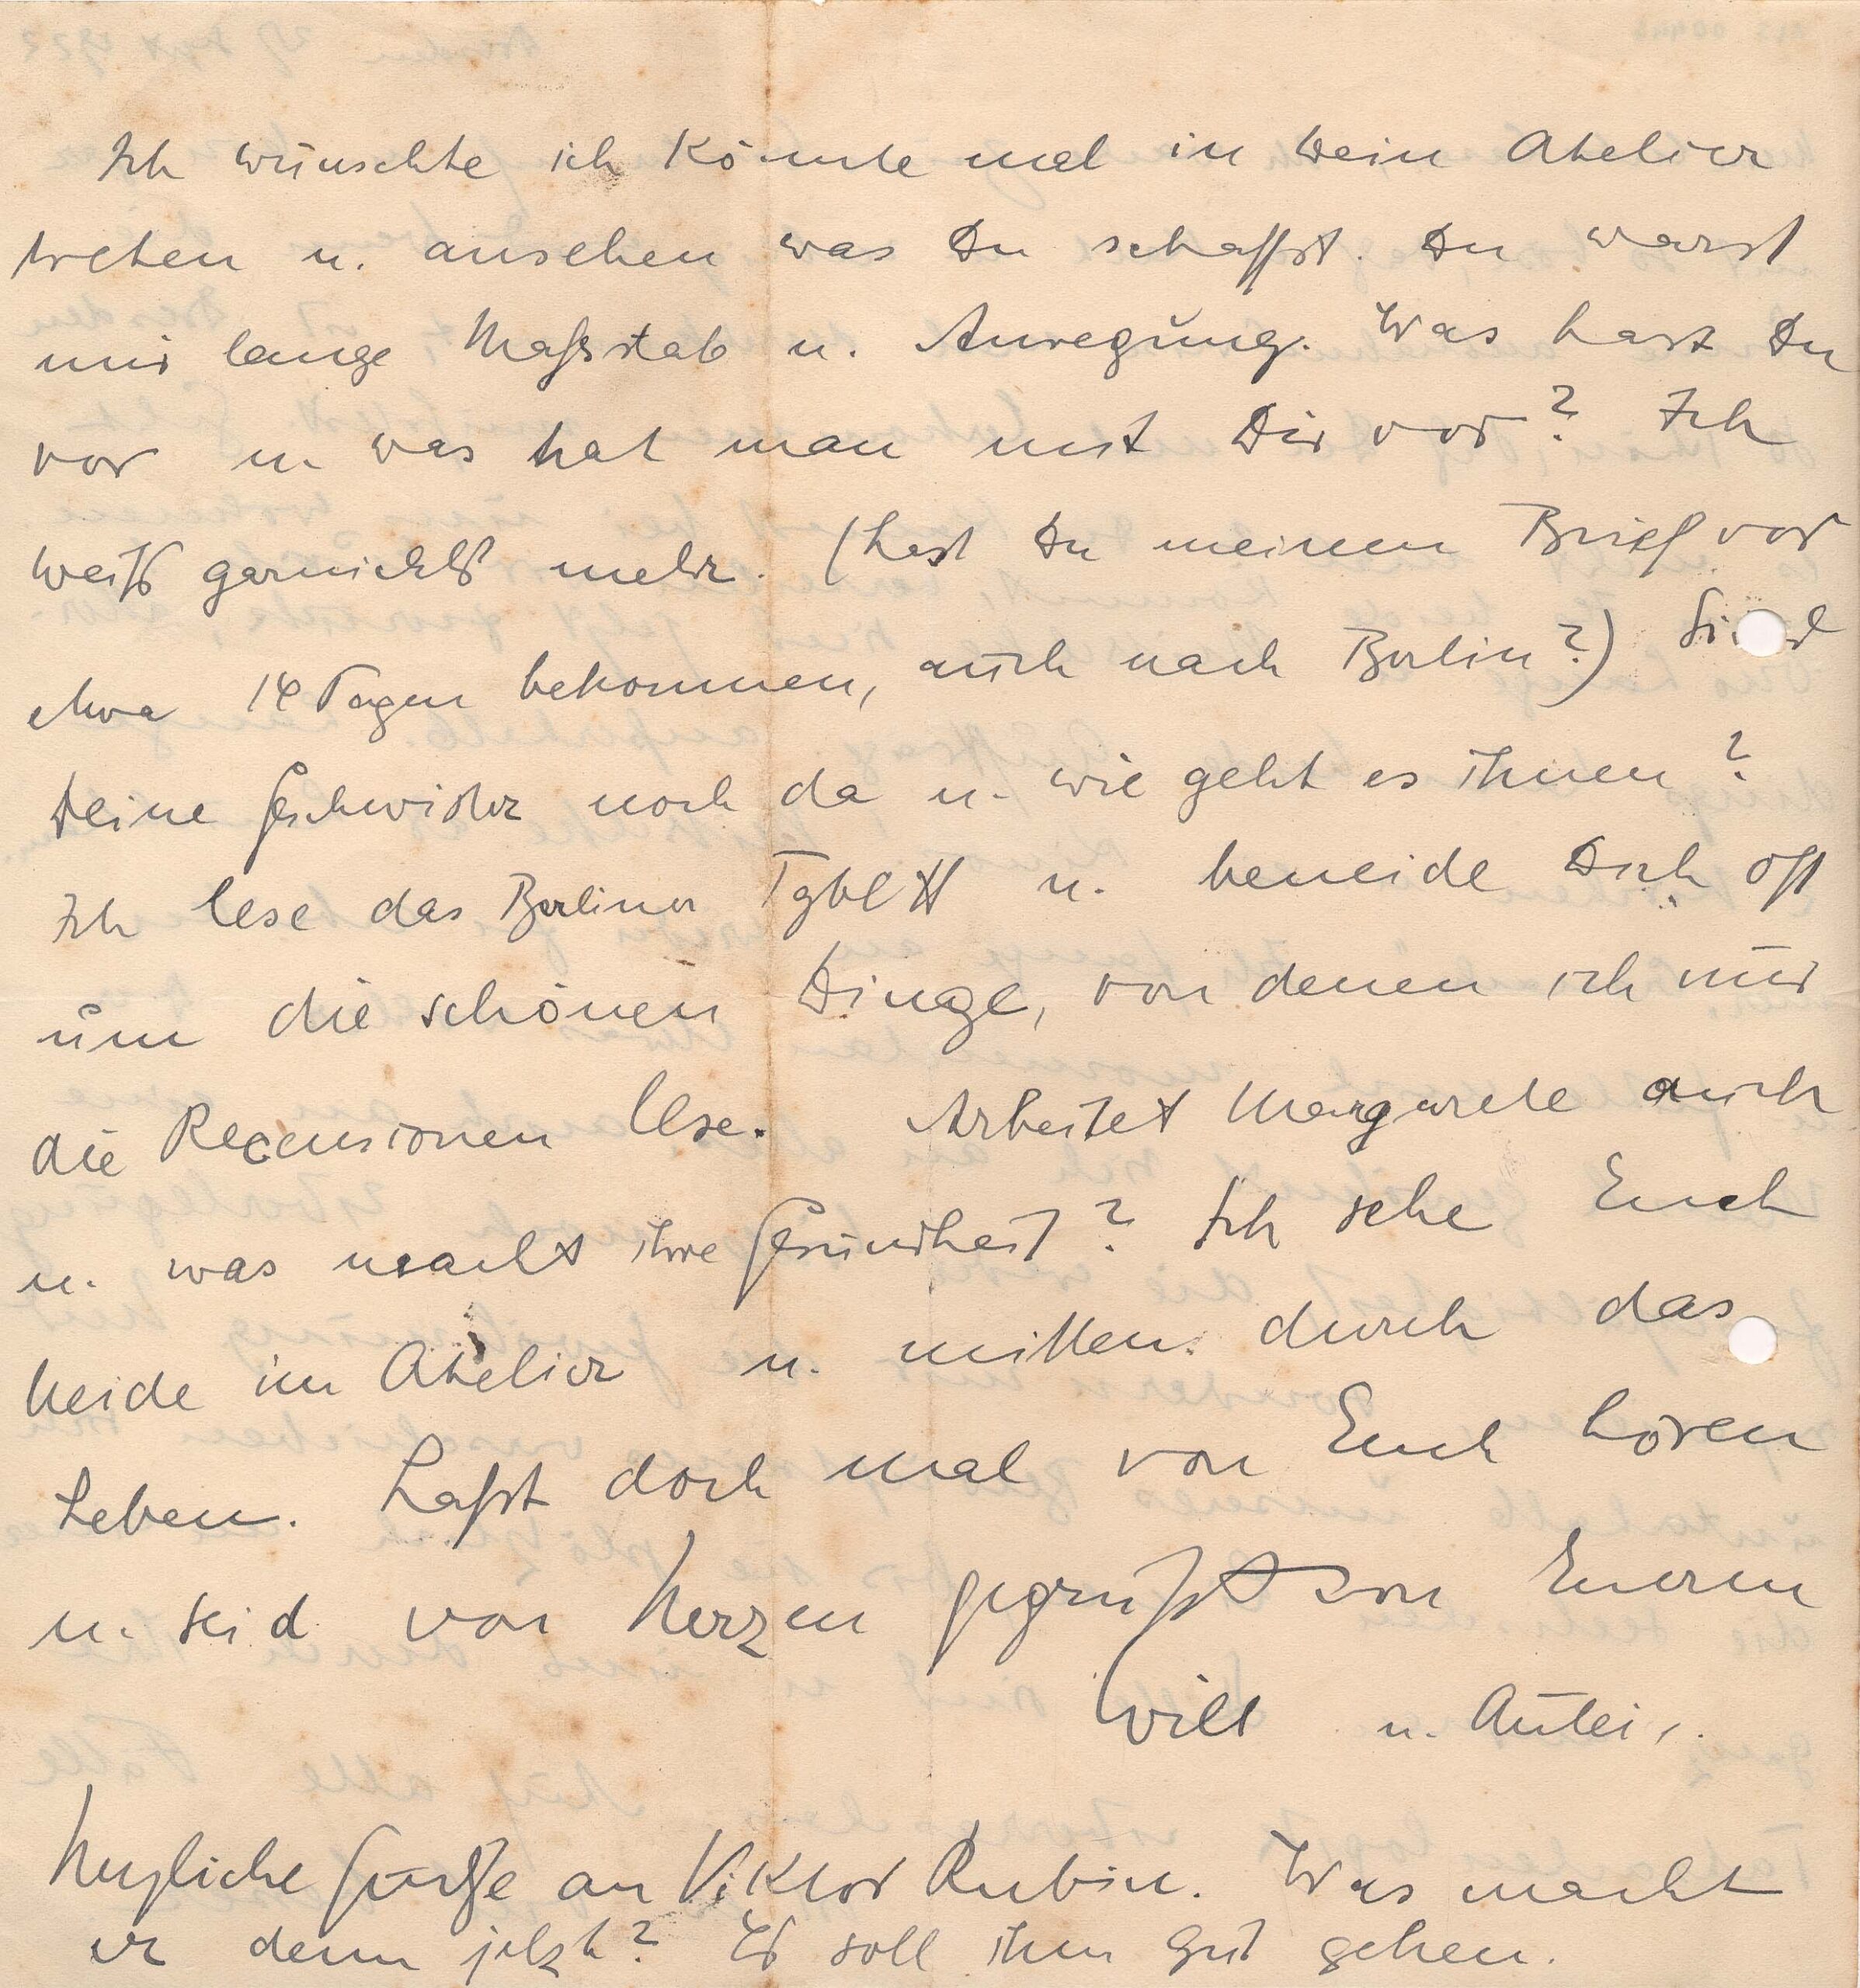 Ich wünschte ich könnte mal in Dein Atelier
treten u. ansehen was Du schaffst. Du warst
mir lange Maßstab u. Anregung. Was hast Du
vor u. was hat man mit Dir vor? Ich
weiß garnichts mehr. (Hast Du meinen Brief vor
etwa 14 Tagen bekommen, auch nach Berlin?) Sind
Deine Geschwister noch da u. wie geht es ihnen?
Ich lese das Berliner Tgbltt u. beneide Dich oft
um die schönen Dinge, von denen ich nur
die Recensionen lese. Arbeitet Margarete auch
u. was macht ihre Gesundheit? Ich sehe Euch
beide im Atelier u. mitten durch das
Leben. Laßt doch mal von Euch hören
u. seid von Herzen gegrüßt von Euerm
Will u.
Herzliche Grüße an Viktor Rubin. Was macht
er denn jetzt? Es soll ihm gut gehen.